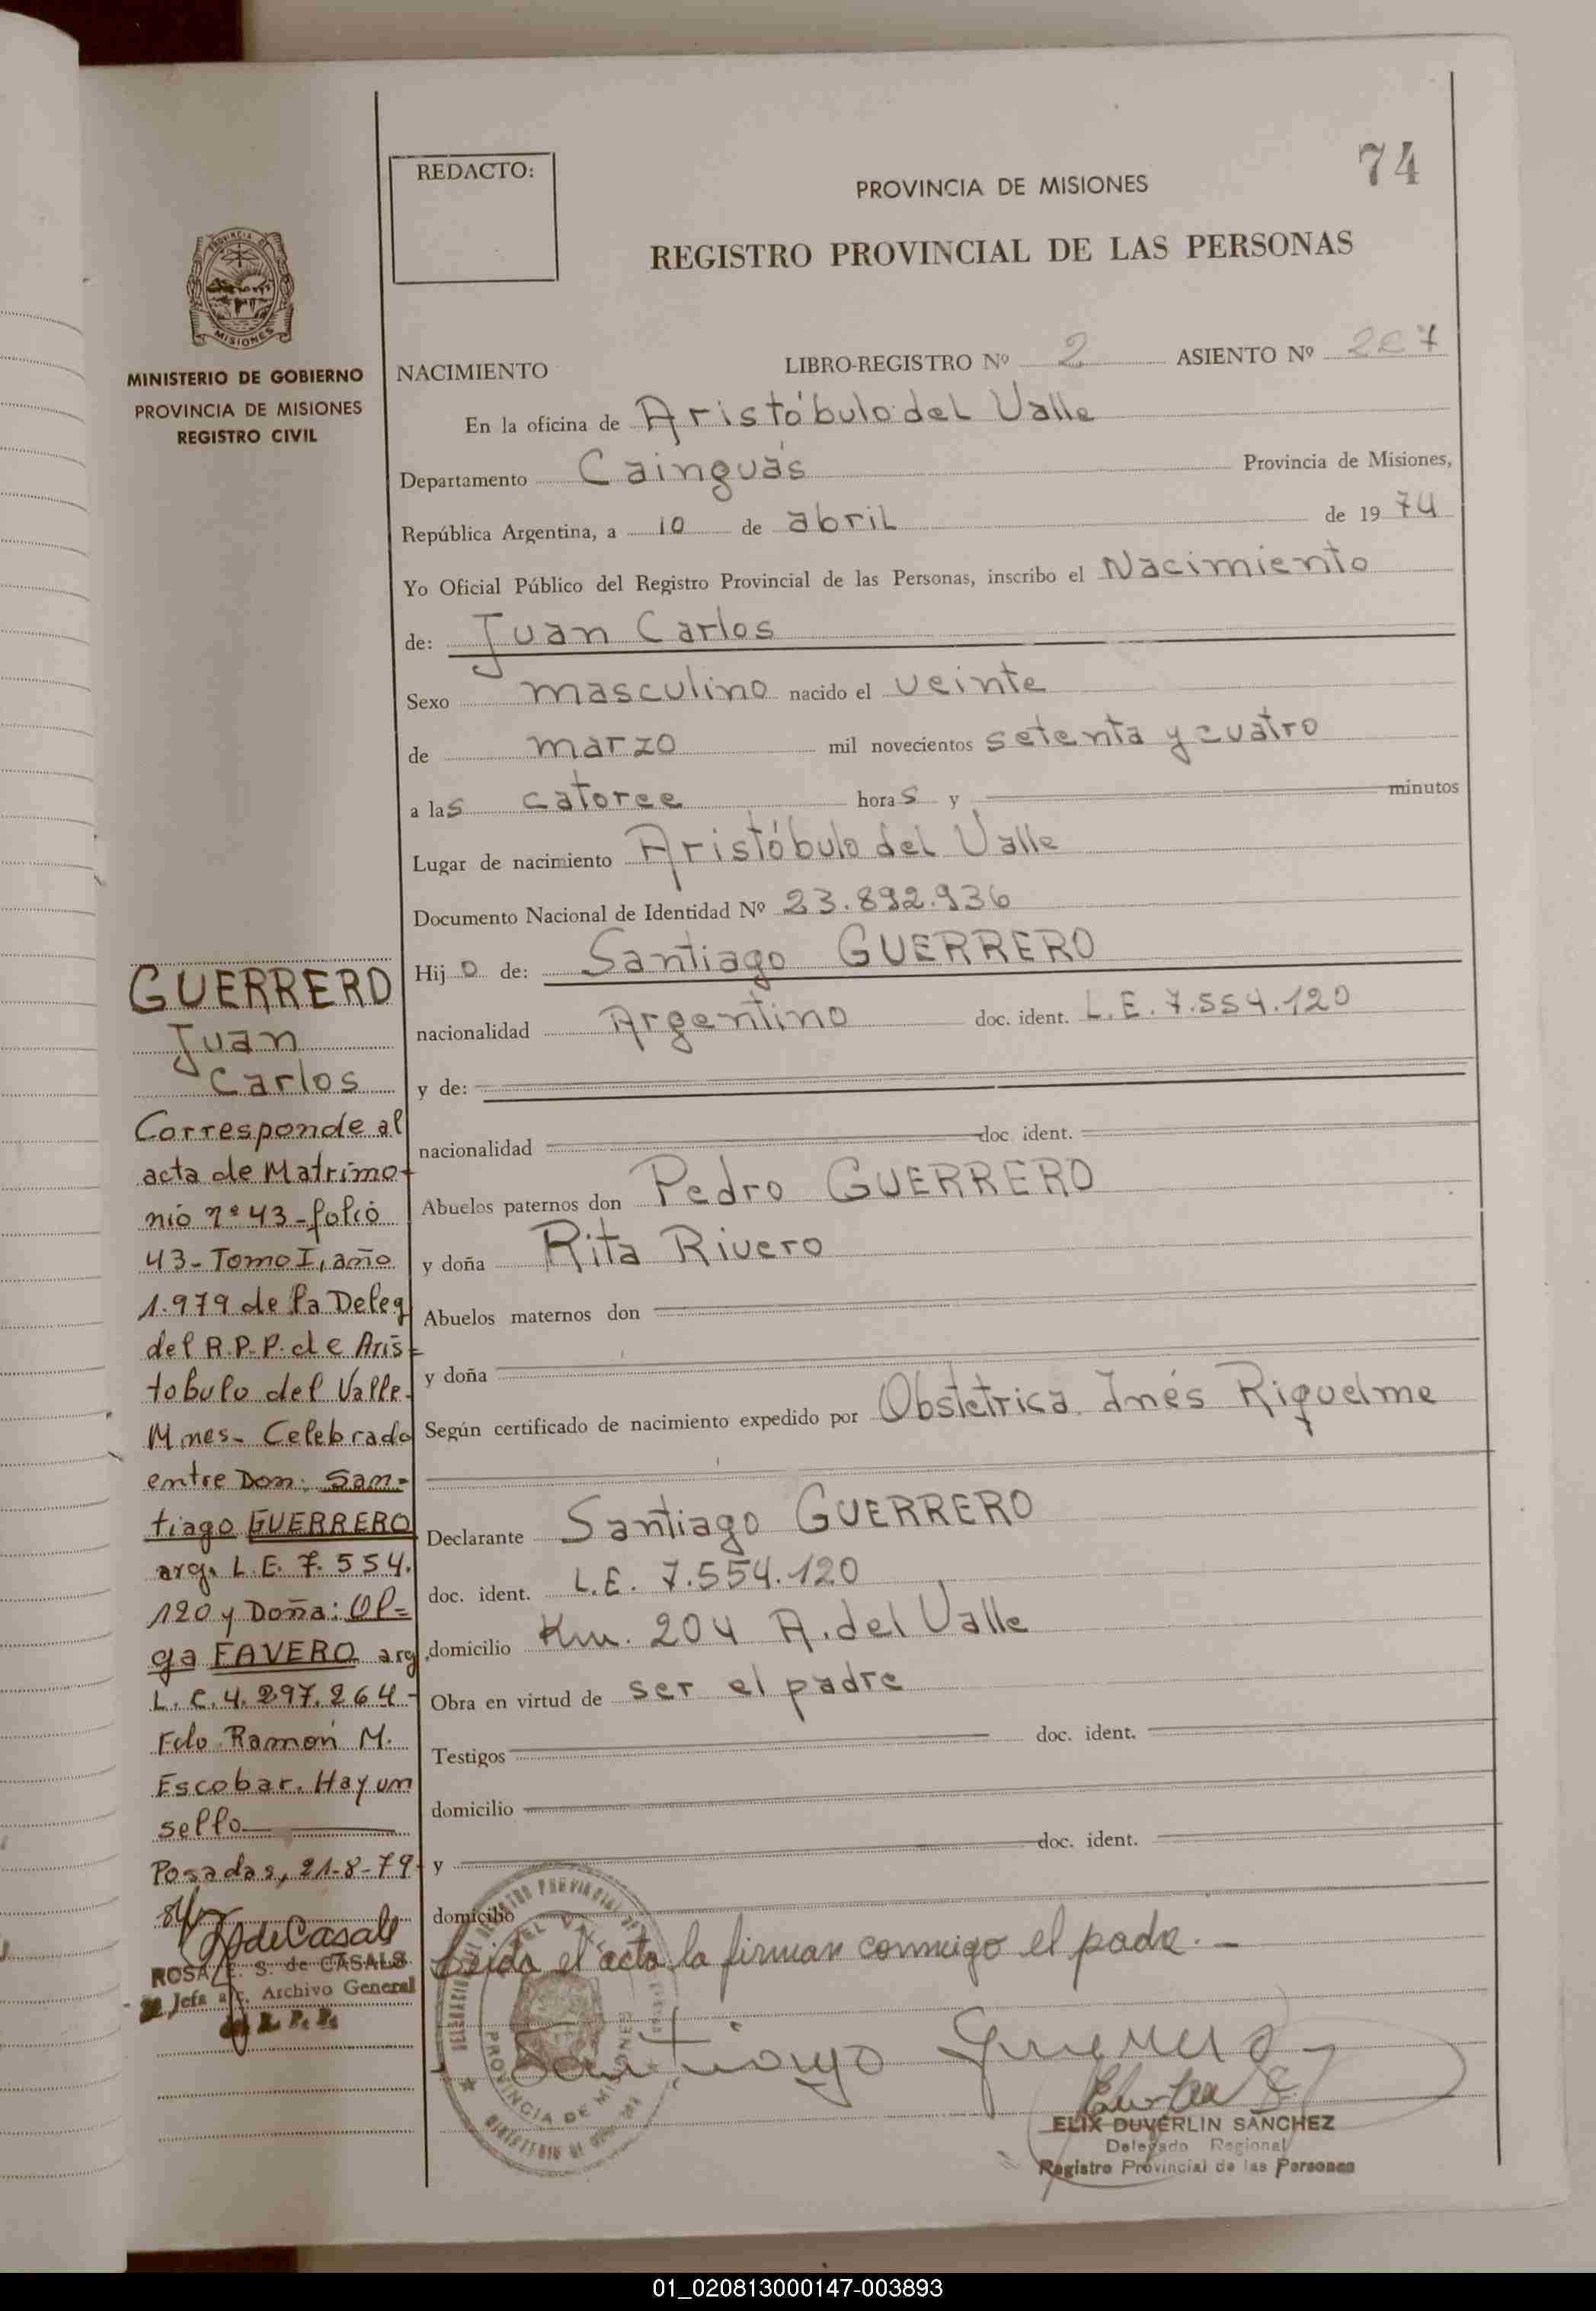 74
REDACTO:
PROVINCIA DE MISIONES
REGISTRO PROVINCIAL DE LAS PERSONAS
PROVINCIA DE
MISIONES
MINISTERIO DE GOBIERNO
PROVINCIA DE MISIONES
REGISTRO CIVIL
NACIMIENTO LIBRO-REGISTRO Nº 2 ASIENTO Nº
En la oficina de Aristóbulo del Valle
Departamento Cainguás Provincia de Misiones,
República Argentina, a 10 de abril de 1974
Yo Oficial Público del Registro Provincial de las Personas, inscribo el Nacimiento
de: Juan Carlos
Sexo masculino nacido el veinte
de marzo mil novecientos setenta y cuatro
a las catorce horas y minutos
Lugar de nacimiento Aristóbulo del Valle
Documento Nacional de Identidad Nº 23.892.936
Hijo de: Santiago GUERRERO
nacionalidad Argentino doc. ident. L.E. 7.554.120
y de:
nacionalidad doc. ident.
Abuelos paternos don Pedro GUERRERO
y doña Rita Rivero
Abuelos maternos don
y doña
Según certificado de nacimiento expedido por Obstetrica Inés Riquelme
Declarante Santiago GUERRERO
doc. ident. L.E. 7.554.120
domicilio Km. 204 A. del Valle
Obra en virtud de ser el padre
Testigos doc. ident.
domicilio
y doc. ident.
domicilio
Leida el acta la firman conmigo el padre.-
Santiago Guerrero
ELIX DUVERLIN SANCHEZ
Delegado Regional
Registro Provincial de las Personas
PROVINCIA DE MISIONES
GUERRERO
Juan
Carlos
Corresponde al
acta de Matrimo-
nio nº 43-folio
43-Tomo I, año
1.979 de la Deleg
del R.P.P. de Aris-
tobulo del Valle.
Mnes- Celebrado
entre Don: San-
tiago GUERRERO
arg. L.E. 7.554.
120 y Doña: Ol=
ga FAVERO arg.
L.C. 4.297.264-
Fdo Ramón M.
Escobar. Hay un
sello
Posadas, 21-8-79
ROSA E. S. de CASALS
Jefa a/c. Archivo General
del R. P. P.
01_020813000147-003893